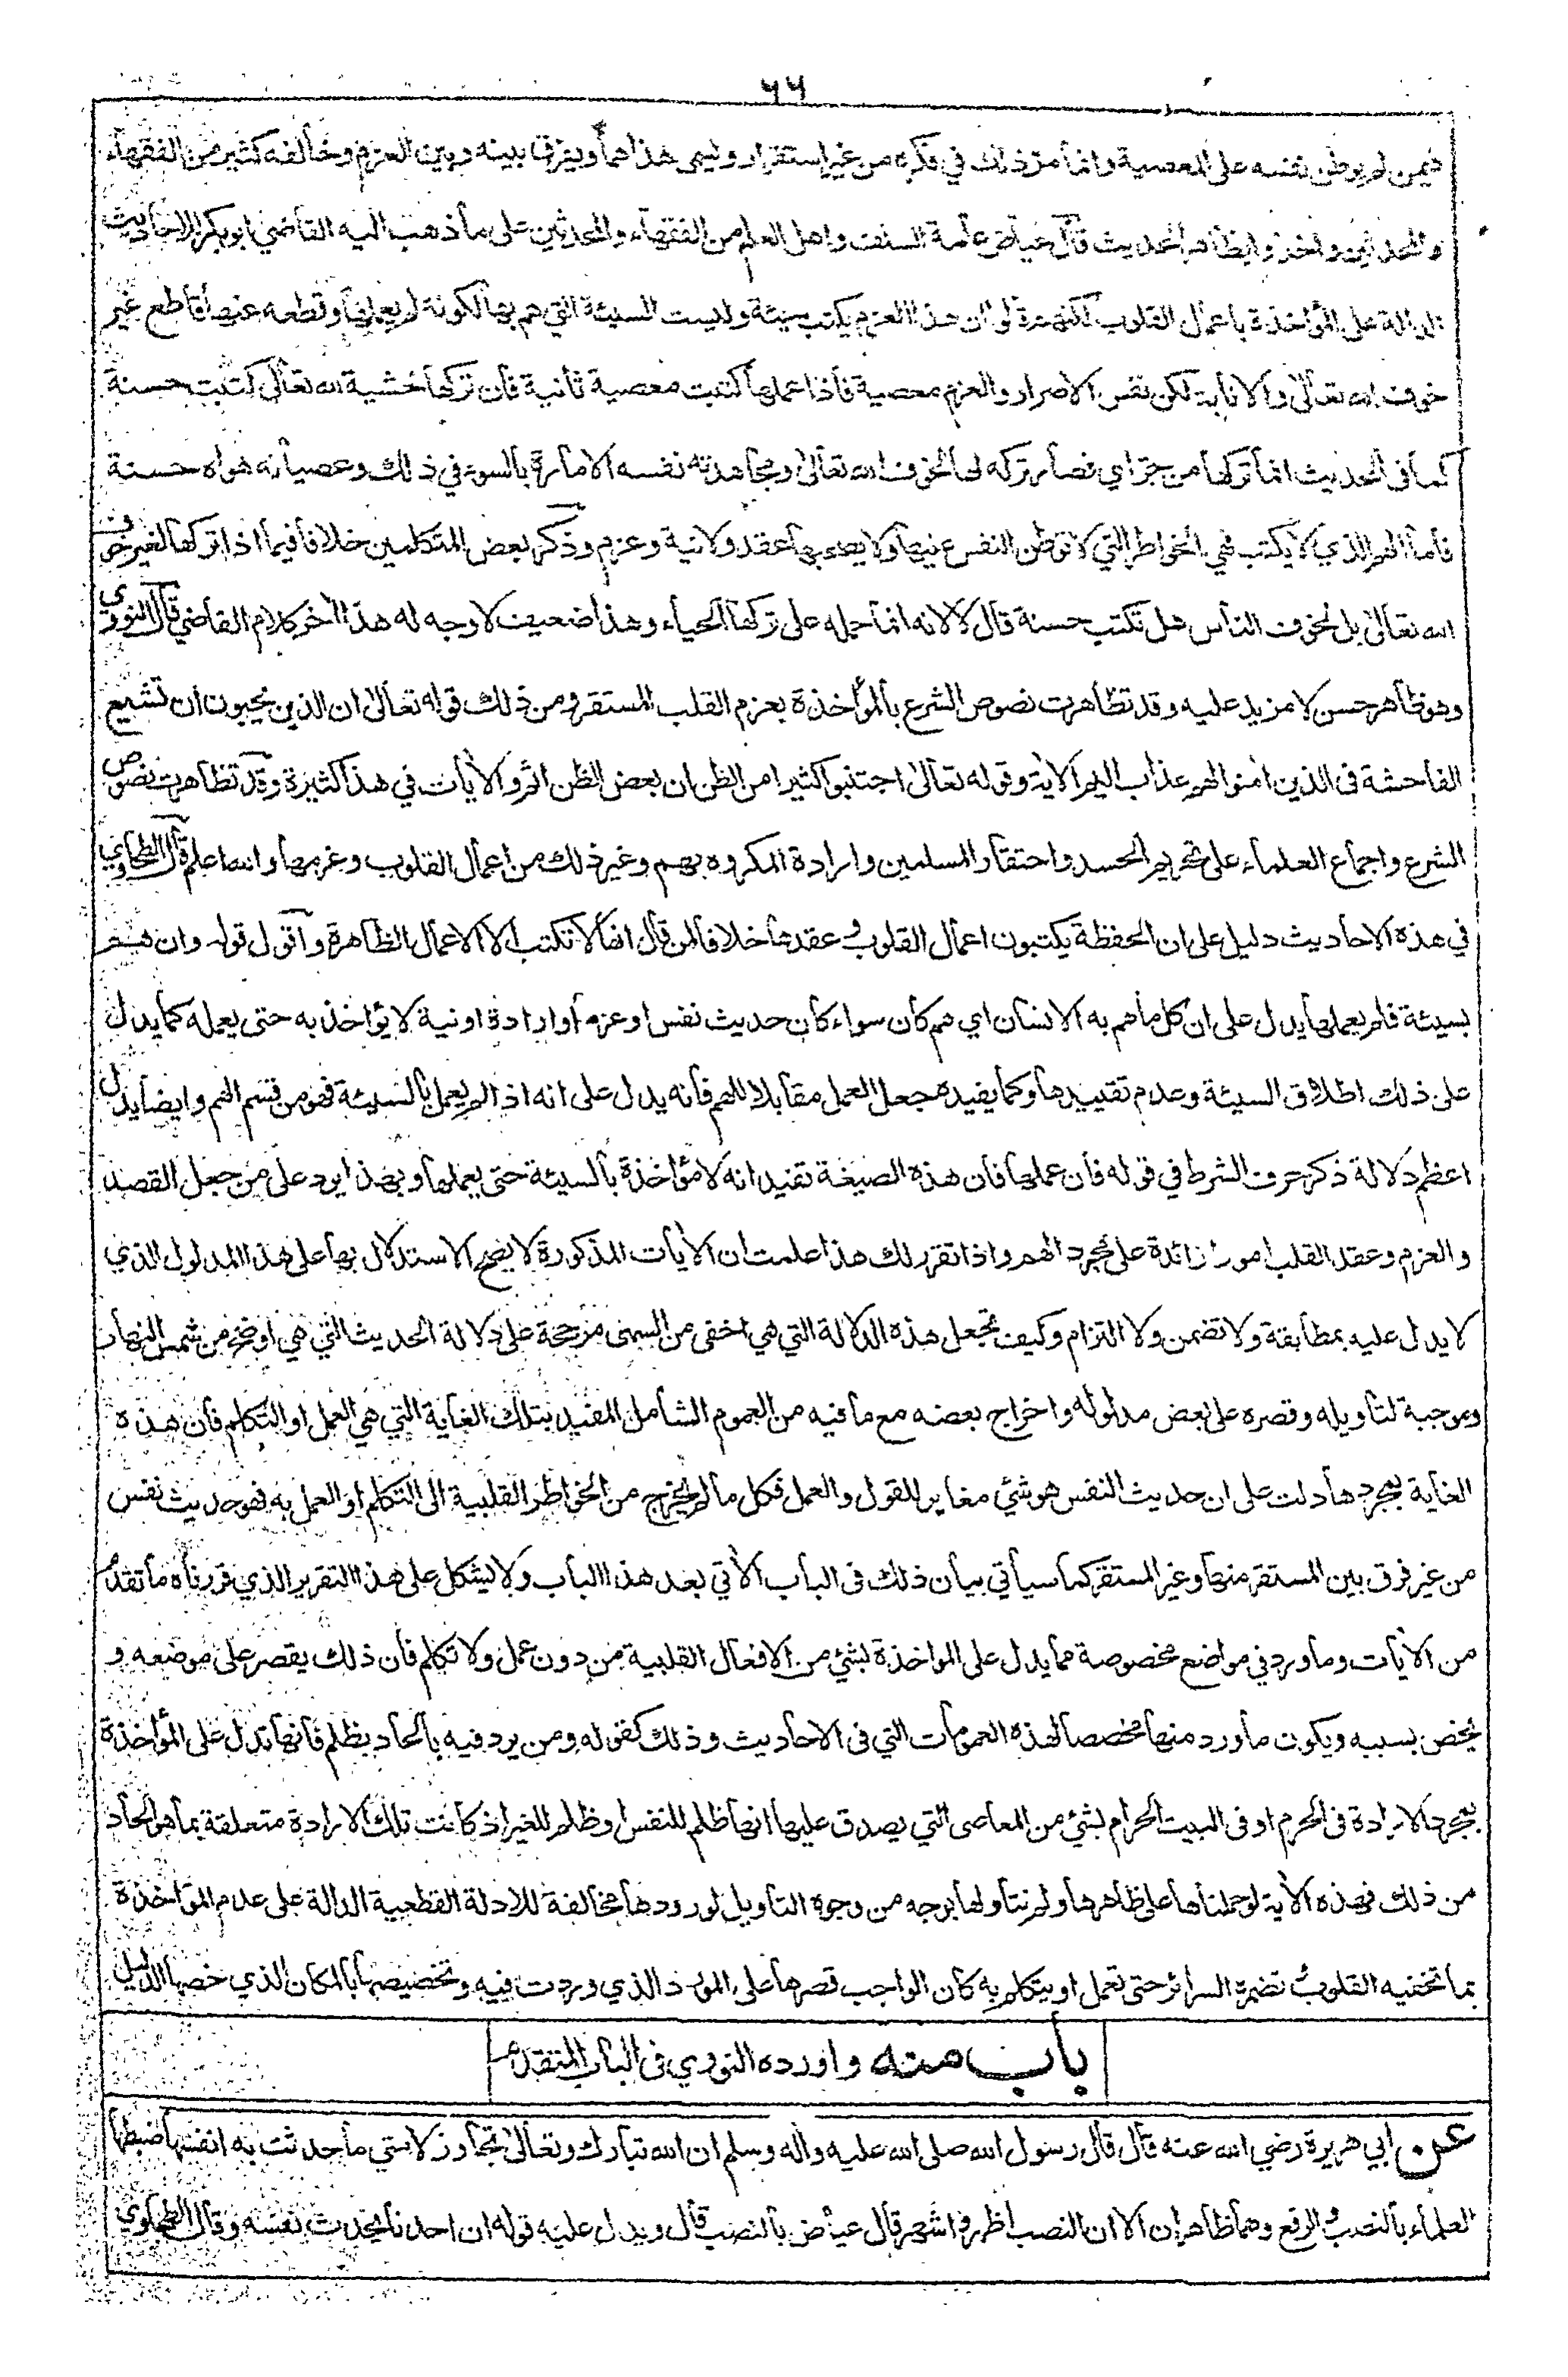 ٦٦
فيمن لم يوطن نفسه على المعصية وانما مر ذلك في فكره من غير استقرار ويسمى هذا هما ويفرق بينه وبين العزم وخالفه كثير من الفقهاء
والمحدثين واخذوا بظاهر الحديث قال عياض عامة السلف واهل العلم من الفقهاء والمحدثين على ما ذهب اليه القاضي ابو بكر للاحاديث
الدالة على المؤاخذة باعمال القلوب لكنهم قالوا ان هذا العزم يكتب سيئة وليست السيئة التي هم بها لكونه لم يعملها وقطعه عنها قاطع غير
خوف الله تعالى والانابة لكن نفس الاصرار والعزم معصية فاذا عملها كتبت معصية ثانية فان تركها خشية الله تعالى كتبت حسنة
كما في الحديث انما تركها من جراي فصار تركه لها لخوف الله تعالى ومجاهدته نفسه الامارة بالسوء في ذلك وعصيانه هواه حسنة
فاما الهم الذي لا يكتب فهي الخواطر التي لا توطن النفس عليها ولا يصحبها عقد ولا نية وعزم وذكر بعض المتكلمين خلافا فيما اذا تركها لغير خوف
الله تعالى بل لخوف الناس هل تكتب حسنة قال لا لانه انما حمله على تركها الحياء وهذا ضعيف لا وجه له هذا اخر كلام القاضي قال النووي
وهو ظاهر حسن لا مزيد عليه وقد تظاهرت نصوص الشرع بالمؤاخذة بعزم القلب المستقر ومن ذلك قوله تعالى ان الذين يحبون ان تشيع
الفاحشة في الذين امنوا لهم عذاب اليم الاية وقوله تعالى اجتنبوا كثيرا من الظن ان بعض الظن اثم والأيات في هذا كثيرة وقد تظاهرت نصوص
الشرع واجماع العلماء على تحريم الحسد واحتقار المسلمين وارادة المكروه بهم وغير ذلك من اعمال القلوب وعزمها والله اعلم قال الطحاوي
في هذه الاحاديث دليل على ان الحفظة يكتبون اعمال القلوب وعقدها خلافا لمن قال انها لا تكتب الا الاعمال الظاهرة واقول قوله وان هم
بسيئة فلم يعملها يدل على ان كل ما هم به الانسان اي هم كان سواء كان حديث نفس او عزم أو ارادة او نية لا يؤاخذ به حتى يعمله كما يدل
على ذلك اطلاق السيئة وعدم تقييدها وكما يفيده جعل العمل مقابلا للهم فانه يدل على انه اذا لم يعمل بالسيئة فهو من قسم الهم وايضا يدل
اعظم دلالة ذكر حرف الشرط في قوله فان عملها فان هذه الصيغة تفيد انه لا مؤاخذة بالسيئة حتى يعملها وبهذا يرد على من جعل القصد
والعزم وعقد القلب امورا زائدة على مجرد الهم واذا تقرر لك هذا علمت ان الأيات المذكورة لا يصح الاستدلال بها على هذا المدلول الذي
لا يدل عليه بمطابقة ولا تضمن ولا التزام وكيف تجعل هذه الدلالة التي هي اخفى من السهى مرجحة على دلالة الحديث التي هي اوضح من شمس النهار
وموجبة لتأويله وقصره على بعض مدلوله واخراج بعضه مع ما فيه من العموم الشامل المفيد بتلك الغاية التي هي العمل او التكلم فان هذه
الغاية بمجردها دلت على ان حديث النفس هو شيء مغاير للقول والعمل فكل ما لم يخرج من الخواطر القلبية الى التكلم او العمل به فهو حديث نفس
من غير فرق بين المستقر منها وغير المستقر كما سيأتي بيان ذلك في الباب الأتي بعد هذا الباب ولا يشكل على هذا التقرير الذي قررناه ما تقدم
من الأيات وما ورد في مواضع مخصوصة مما يدل على المواخذة بشئ من الافعال القلبية من دون عمل ولا تكلم فان ذلك يقصر على موضعه و
يخص بسببه ويكون ما ورد منها مخصصا لهذه العمومات التي في الاحاديث وذلك كقوله ومن يرد فيه بالحاد بظلم فانها تدل على المؤاخذة
بمجرد الارادة في الحرم او في البيت الحرام بشئ من المعاصي التي يصدق عليها انها ظلم للنفس او ظلم للغير اذ كانت تلك الارادة متعلقة بما هو الحاد
من ذلك فهذه الأية لو حملناها على ظاهرها ولم نتأولها بوجه من وجوه التأويل لورودها مخالفة للادلة القطعية الدالة على عدم المؤاخذة
بما تخفيه القلوب وتضمره السرائر حتى تعمل او يتكلم به كان الواجب قصرها على المورد الذي وردت فيه وتخصيصها بالمكان الذي خصها الدليل
باب منه واورده النووي في الباب المتقدم
عن ابي هريرة رضي الله عنه قال قال رسول الله صلى الله عليه واله وسلم ان الله تبارك وتعالى تجاوز لامتي ما حدثت به انفسها ضبطها
العلماء بالنصب والرفع وهما ظاهران الا ان النصب اظهر واشهر قال عياض بالنصب قال ويدل عليه قوله ان احدنا يحدث نفسه وقال الطحاوي